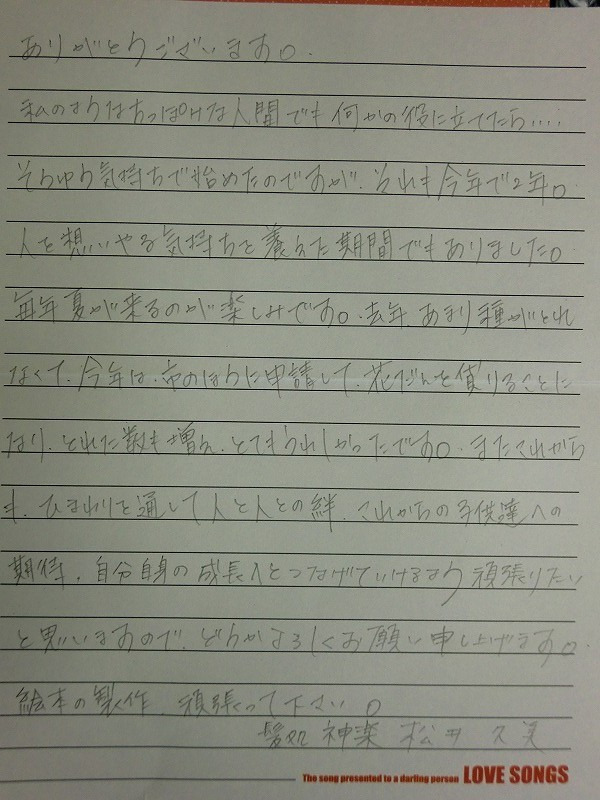 ありがとうございます。
私のようなちっぽけな人間でも何かの役に立てたら....
そういう気持ちで始めたのですが、それも今年で2年。
人を想いやる気持ちを養えた期間でもありました。
毎年夏が来るのが楽しみです。去年、あまり種がとれ
なくて、今年は、市のほうに申請して、花だんを借りることに
なり、とれた数も増え、とてもうれしかったです。またこれから
も、ひまわりを通して人と人との絆、これからの子供達への
期待、自分自身の成長へとつなげていけるよう頑張りたい
と思いますので、どうかよろしくお願い申し上げます。
絵本の製作、頑張って下さい。
髪処 神楽 松田 久美
The song presented to a darling person LOVE SONGS